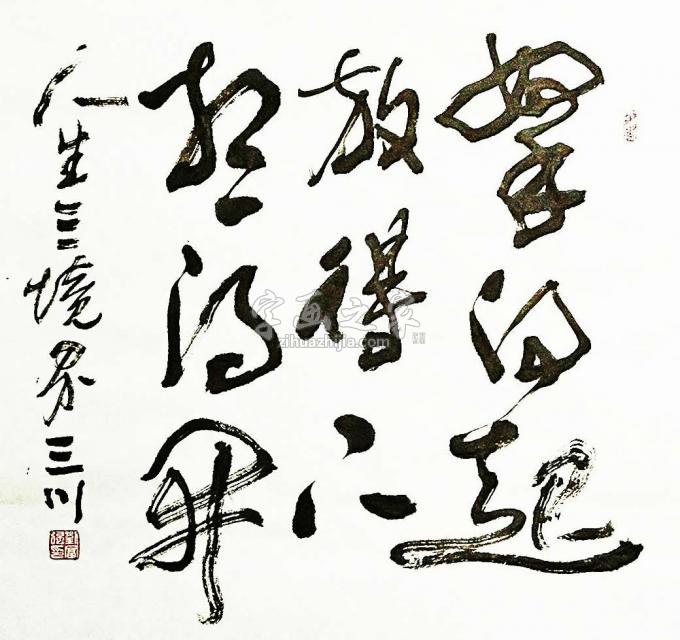 拏得起
放得下
想得開
人生三境界 三川
字画之家
zihuazhijia.com